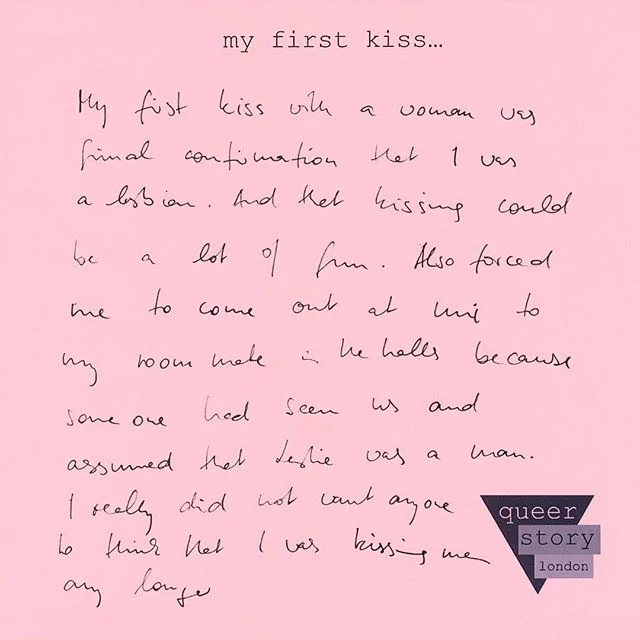 my first kiss...
My first kiss with a woman was
final confirmation that I was
a lesbian. And that kissing could
be a lot of fun. Also forced
me to come out at uni to
my room mate in the halls because
some one had seen us and
assumed that Leslie was a man.
I really did not want anyone
to think that I was kissing men
any longer
queer
story
london